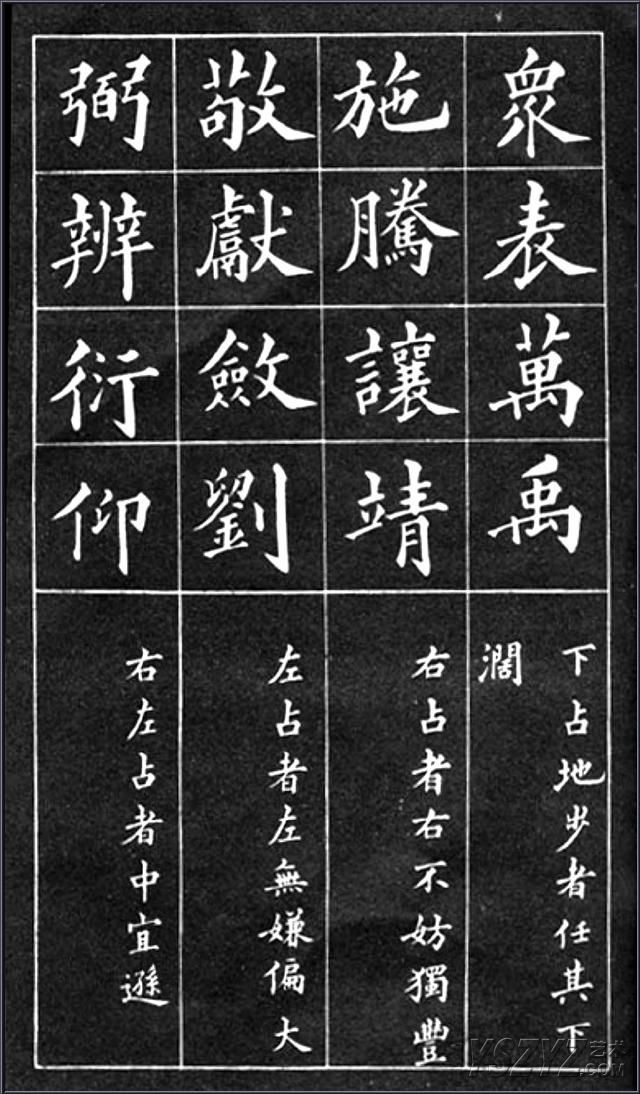 衆表萬禹
下占地步者任其下
濶
施騰讓靖
右占者右不妨獨豐
敬獻斂劉
左占者左無嫌偏大
弼辨衍仰
右左占者中宜遜
YGZYZ艺术
.COM